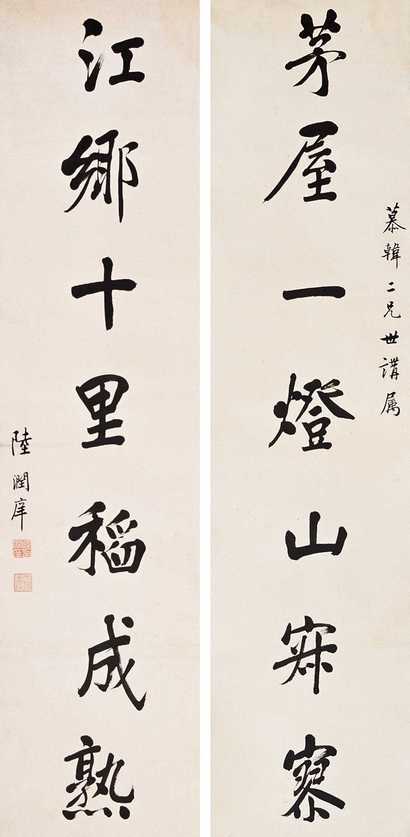 慕韓二兄世講属
茅屋一燈山寂寥
江鄉十里稻成熟
陸潤庠